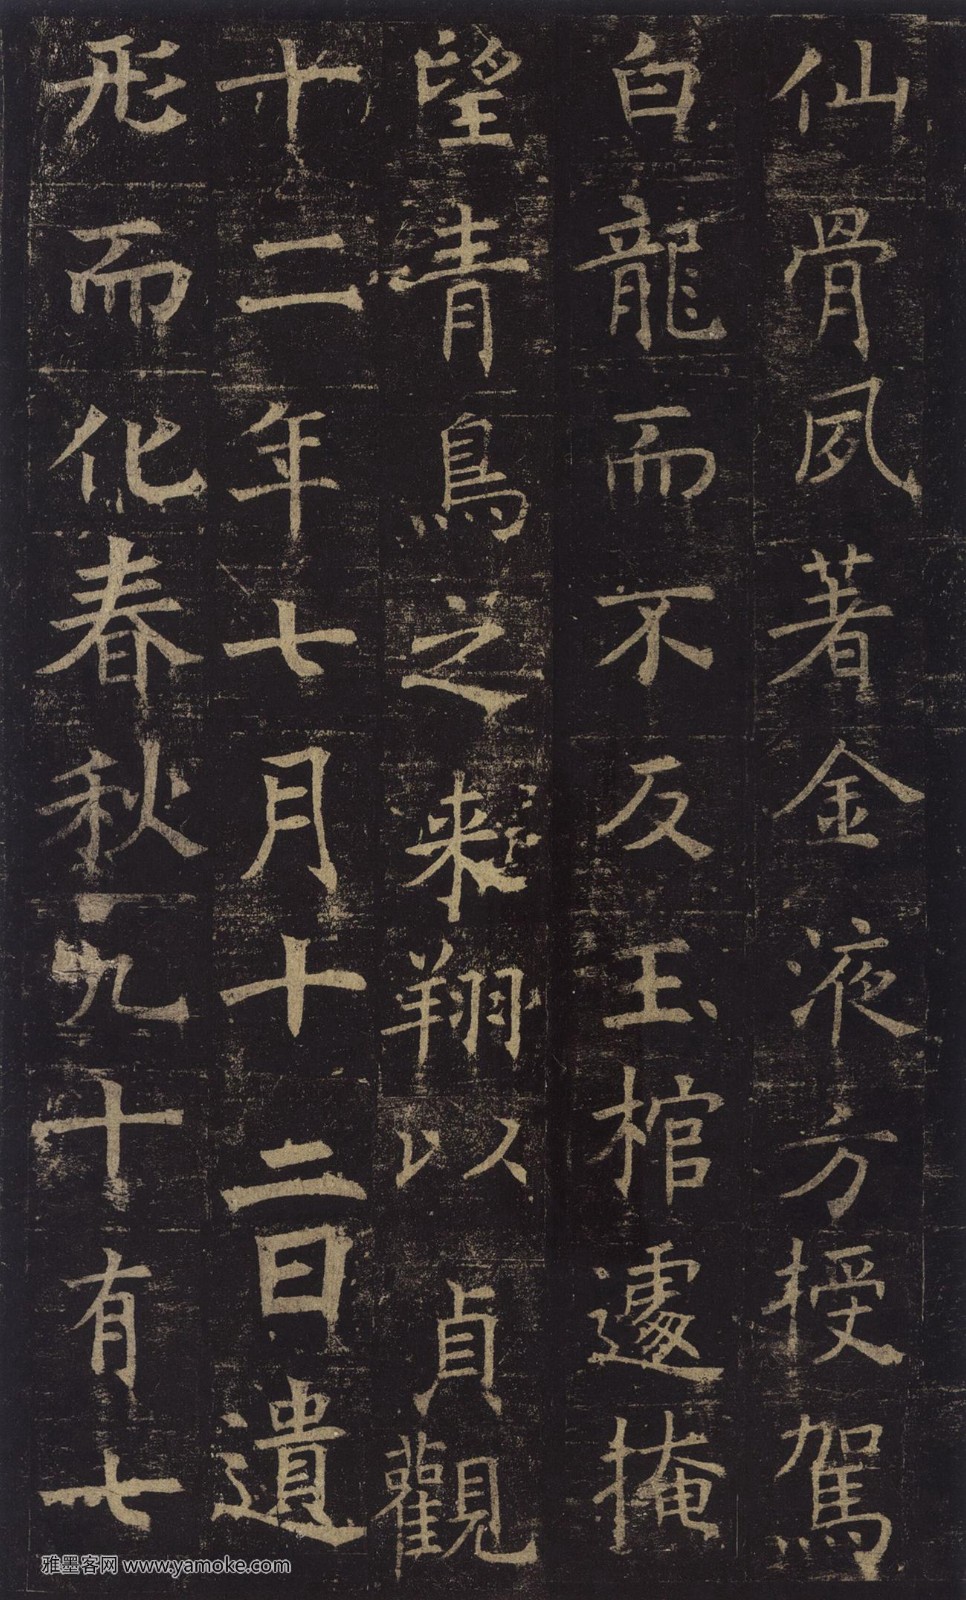 仙骨夙著金液方授駕
白龍而不反玉棺遽掩
望青鳥之来翔以貞觀
十二年七月十二日遺
形而化春秋九十有七
雅墨客网 www.yamoke.com